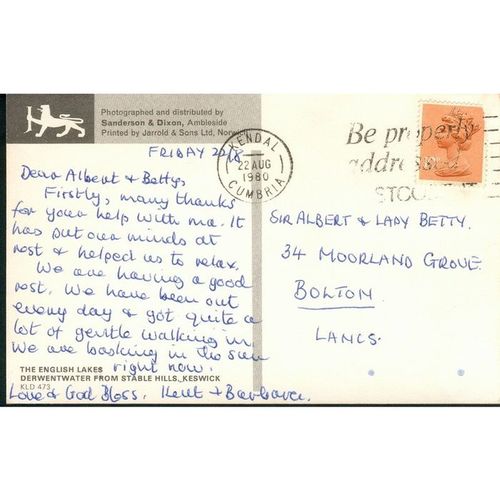 Photographed and distributed by
Sanderson & Dixon, Ambleside
Printed by Jarrold & Sons Ltd, Norwich
KENDAL
22 AUG
1980
CUMBRIA
Be properly
addressed
FRIDAY
Dear Albert & Betty,
Firstly, many thanks
for your help with ma. It
has put our minds at
rest & helped us to relax.
We are having a good
rest. We have been out
every day & got quite a
lot of gentle walking in.
We are basking in the sun
right now.
Love & God Bless. Kent & Barbara.
THE ENGLISH LAKES
DERWENTWATER FROM STABLE HILLS, KESWICK
KLD 473
SIR ALBERT & LADY BETTY.
34 MOORLAND GROVE
BOLTON
LANCS.